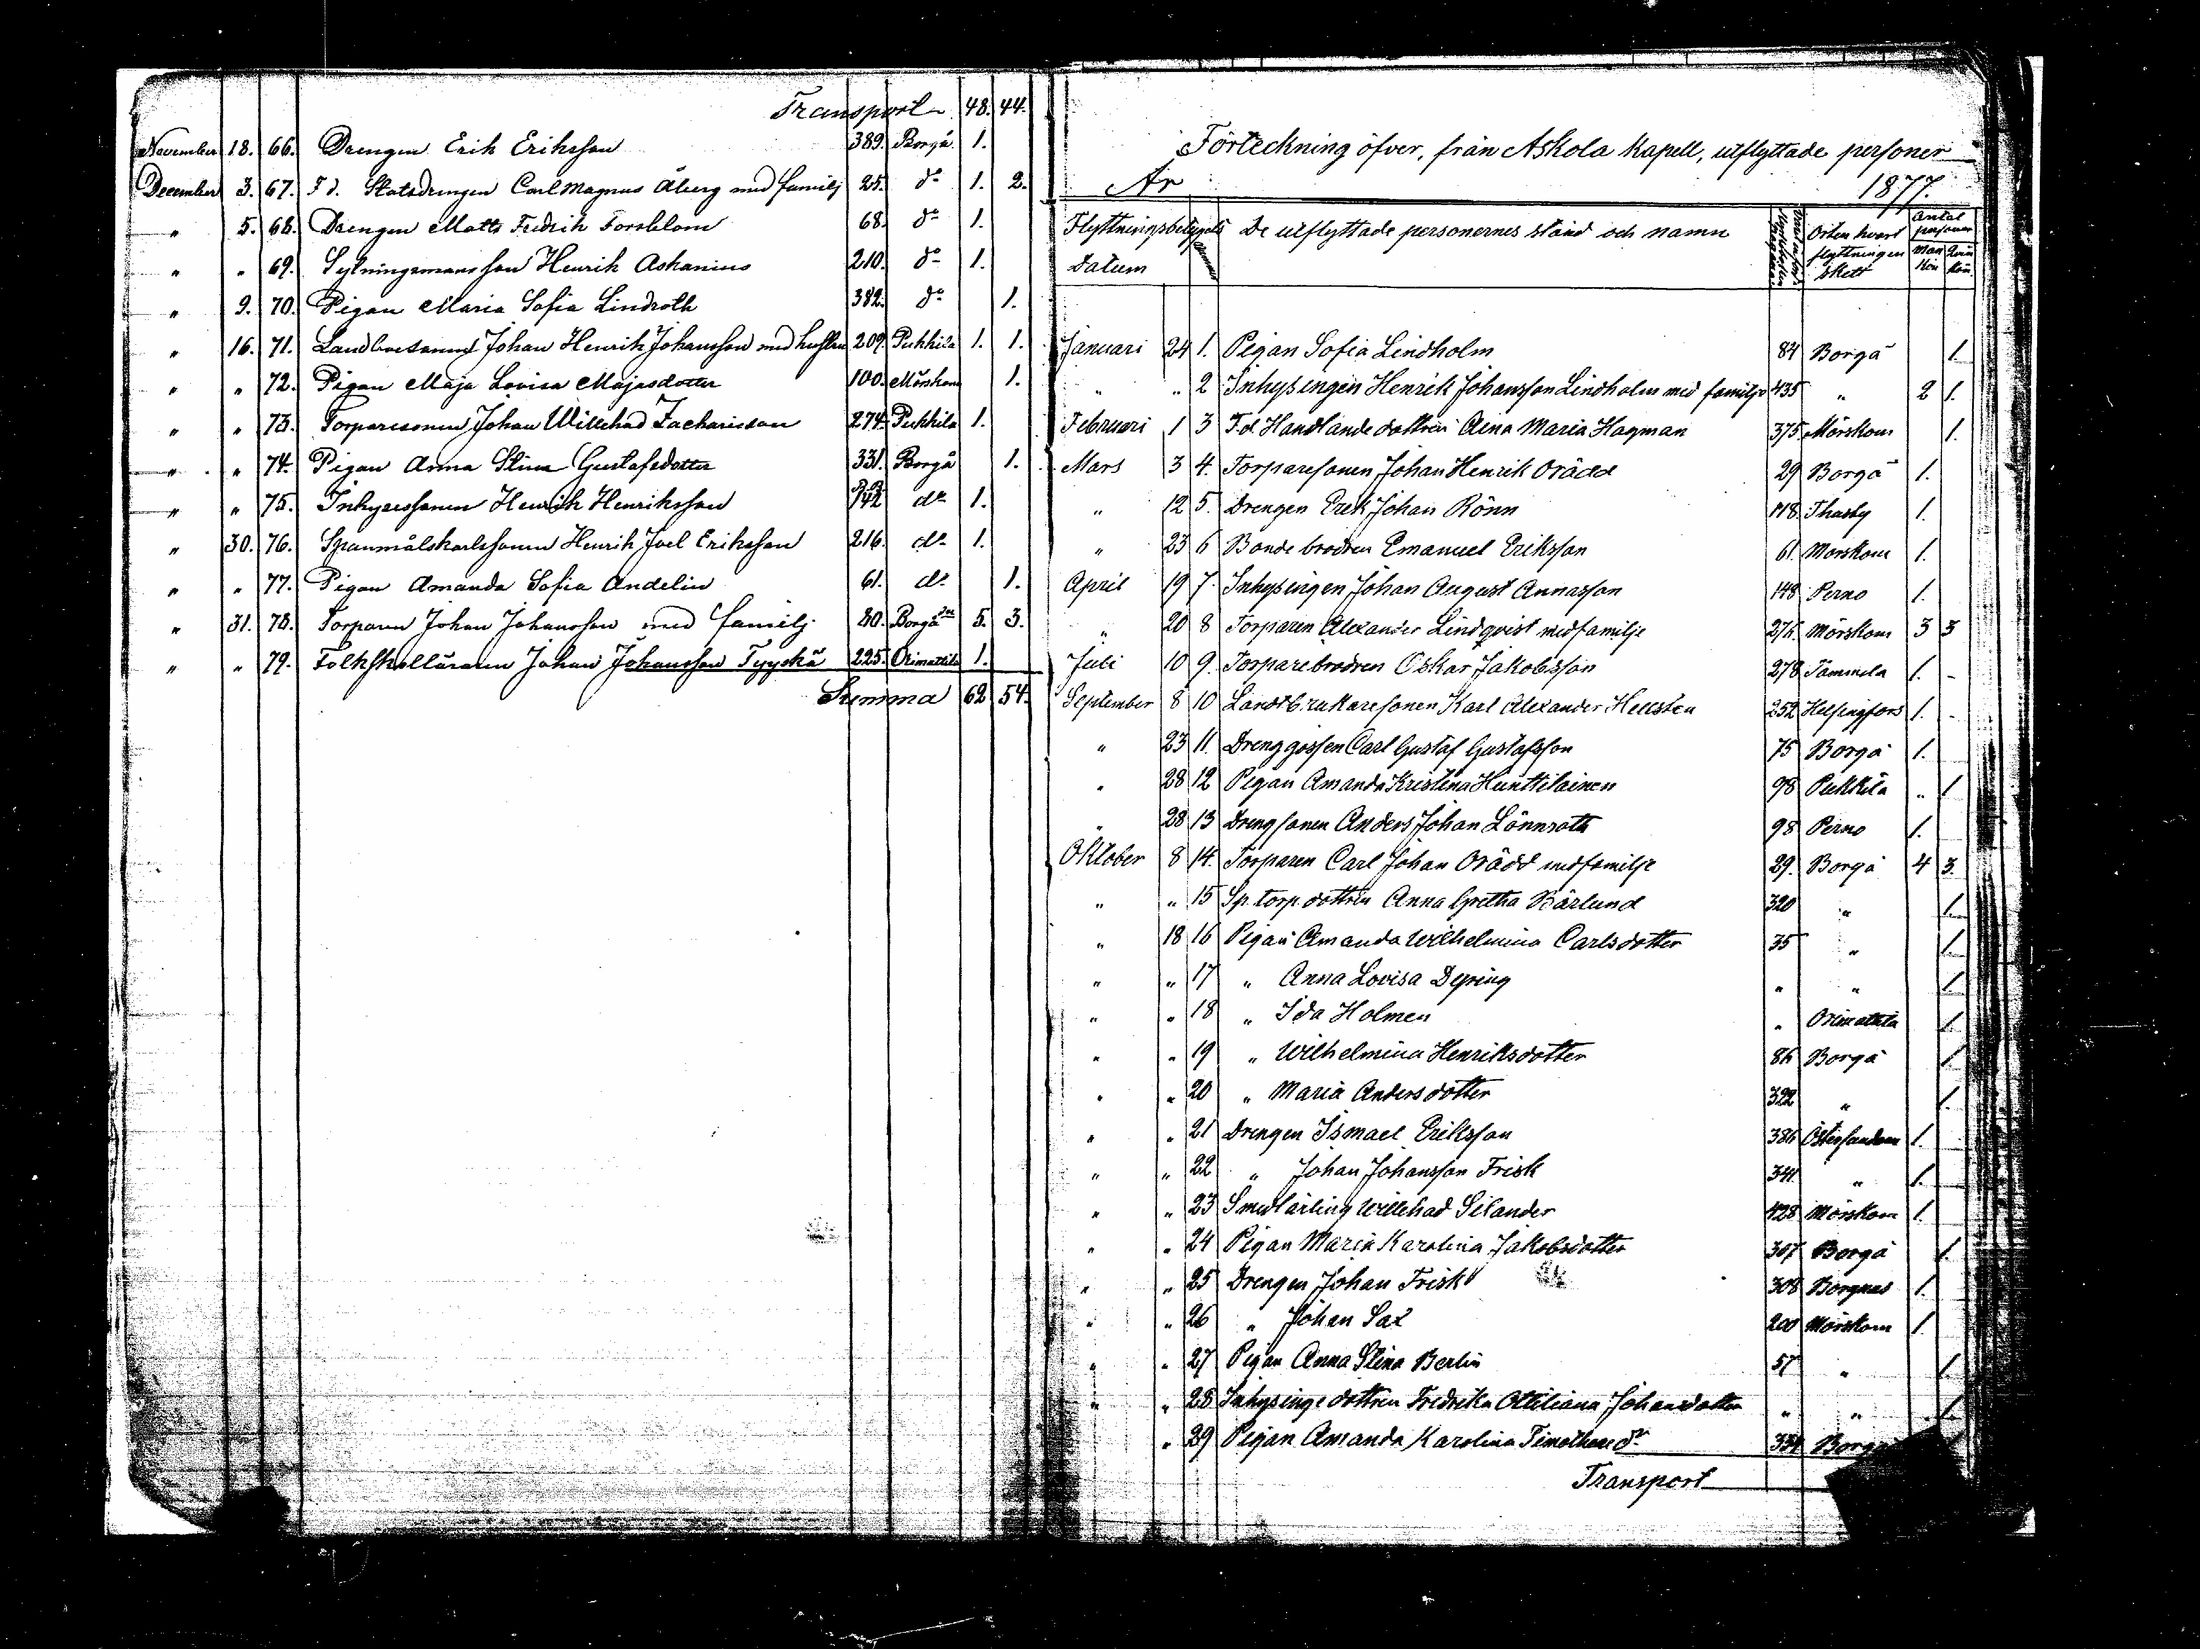 Transport 48. 44.
November 18. 66. Drengen Erik Eriksson 389. Borgå 1.
December 3. 67. F d. Statsdrengen Carl Magnus Åberg med familj 25. do 1. 2.
" 5. 68. Drengen Matts Fredrik Forsblom 68. do 1.
" " 69. Sytningsmansson Henrik Askanius 210. do 1.
" 9. 70. Pigan Maria Sofia Lindroth 382. do 1.
" 16. 71. Landbosonen Johan Henrik Johansson med hustru 209. Pukkila 1. 1.
" " 72. Pigan Maja Lovisa Majasdotter 100. Mörskom 1.
" " 73. Torparesonen Johan Willehad Zachariasson 274. Pukkila 1.
" " 74. Pigan Anna Stina Gustafsdotter 331. Borgå 1.
" " 75. Inhysessonen Henrik Henriksson do 1.
" 30. 76. Spanmålskarlssonen Henrik Joel Eriksson 216. do 1.
" " 77. Pigan Amanda Sofia Andelin 61. do 1.
" 31. 78. Torparen Johan Johansson med familj 80. Borgå 5. 3.
" " 79. Folkskolläraren Johan Johansson Tyyskä 225. Orimattila 1.
Summa 62 54.
Förteckning öfver, från Askola kapell, utflyttade personer
År 1877.
Flyttningsbetygets De utflyttade personernes stånd och namn Orten hvart flyttningen skett Antal personer
Datum Man kön Qvin kön
Januari 24 1. Pigan Sofia Lindholm 84 Borgå 1.
" " 2 Inhysingen Henrik Johansson Lindholm med familje 435 " 2 1.
Februari 1 3 F.d. Handlande dottren Aina Maria Hagman 375 Mörskom 1.
Mars 3 4. Torparesonen Johan Henrik Orädd 29 Borgå 1.
" 12 5. Drengen Erik Johan Rönn 118. Thusby 1.
" 23 6 Bonde brodren Emanuel Eriksson 61. Mörskom 1.
April 19 7. Inhysingen Johan August Annasson 148 Perno 1.
" 20 8 Torparen Alexander Lindqvist med familje 276. Mörskom 3 3
Juli 10 9. Torparebrodren Oskar Jakobsson 278 Tammela 1. -
September 8 10 Landtbrukaresonen Karl Alexander Hellsten 252 Helsingfors 1. -
" 23 11. Drenggossen Carl Gustaf Gustafsson 75 Borgå 1.
" 28 12 Pigan Amanda Kristina Hunttilainen 98 Pukkila " 1
" 28 13 Drengsonen Anders Johan Lönnroth 98 Perno 1.
Oktober 8 14. Torparen Carl Johan Orädd med familje 29. Borgå 4 3.
" " 15 Sp. torp. dottren Anna Gretha Bärlund 320 " 1.
" 18 16 Pigan Amanda Wilhelmina Carlsdotter 35 " 1.
" " 17 " Anna Lovisa Dyring " " 1.
" " 18 " Ida Holmen " Orimattila 1.
" " 19 " Wilhelmina Henriksdotter 86 Borgå 1.
" " 20 " Maria Andersdotter 322 " 1.
" " 21 Drengen Ismael Eriksson 386 Östersundom 1.
" " 22 " Johan Johansson Frisk 341. " 1.
" " 23 Smedlärling Willehad Silander 428 Mörskom 1.
" " 24 Pigan Maria Karolina Jakobsdotter 307 Borgå 1.
" " 25 Drengen Johan Frisk 308 Borgnäs 1.
" " 26 " Johan Sax 200 Mörskom 1.
" " 27 Pigan Anna Stina Berlin 57 " 1.
" " 28 Inhysinge dottren Fredrika Ottiliana Johansdotter " " 1.
" 29 Pigan Amanda Karolina Timotheus dr 334
Transport